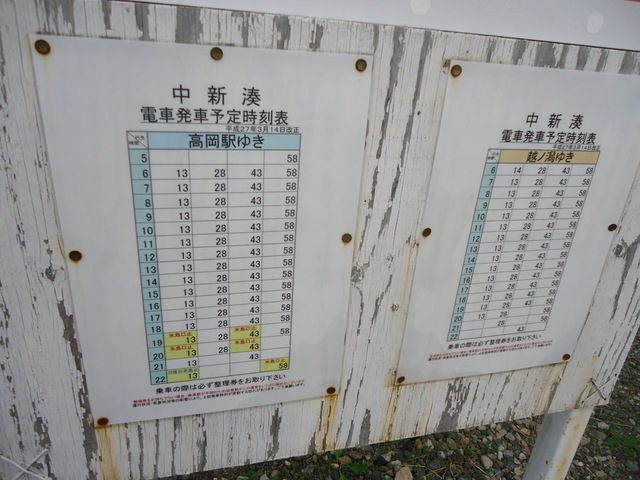 中新湊
電車発車予定時刻表
平成27年3月14日改正
高岡駅ゆき
5 58
6 13 28 43 58
7 13 28 43 58
8 13 28 43 58
9 13 28 43 58
10 13 28 43 58
11 13 28 43 58
12 13 28 43 58
13 13 28 43 58
14 13 28 43 58
15 13 28 43 58
16 13 28 43 58
17 13 28 43 58
18
19 13 28 43
20 13
21 43 58
22 13
乗車の際は必ず整理券をお取り下さい
中新湊
電車発車予定時刻表
平成27年3月14日改正
越ノ潟ゆき
6 14 28 43 58
7 13 28 43 58
8 13 28 43 58
9 13 28 43 58
10 13 28 43 58
11 13 28 43 58
12 13 28 43 58
13 13 28 43 58
14 13 28 43 58
15 13 28 43 58
16 13 28 43 58
17 13 28 43 58
18 13 28 43 58
19 13 28 43 58
20 13 28 58
21 13 28 58
22 13 43
乗車の際は必ず整理券をお取り下さい